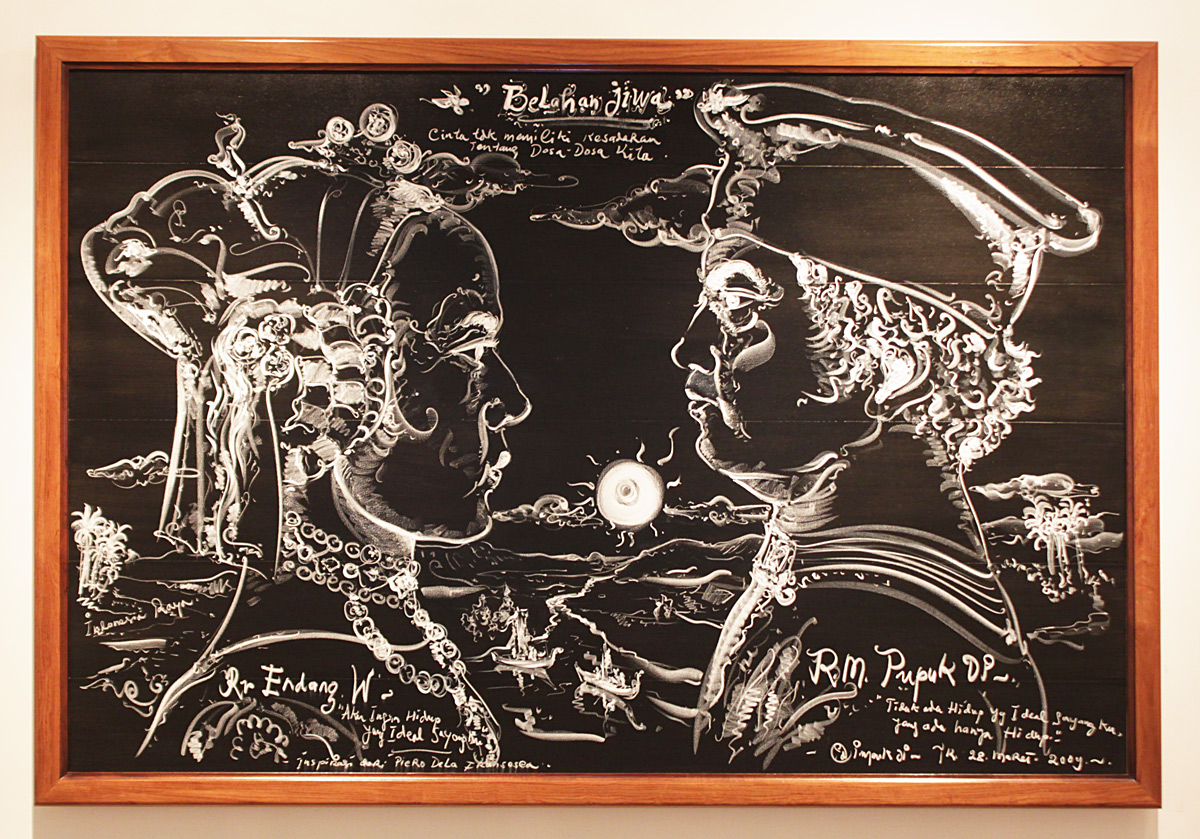 " Belahan Jiwa "
Cinta tdk memiliki Kesadaran
Tentang Dosa-Dosa Kita.
Indonesia Raya
Rr Endang W
"Aku Ingin Hidup
yang Ideal Sayangku
inspirasi dari: PIERO DELA FRANSESCA..
R.M. Pupuk DP
"Tidak ada Hidup yg Ideal Sayang Ku.
yang ada hanya Hidup."
28. Maret. 2009